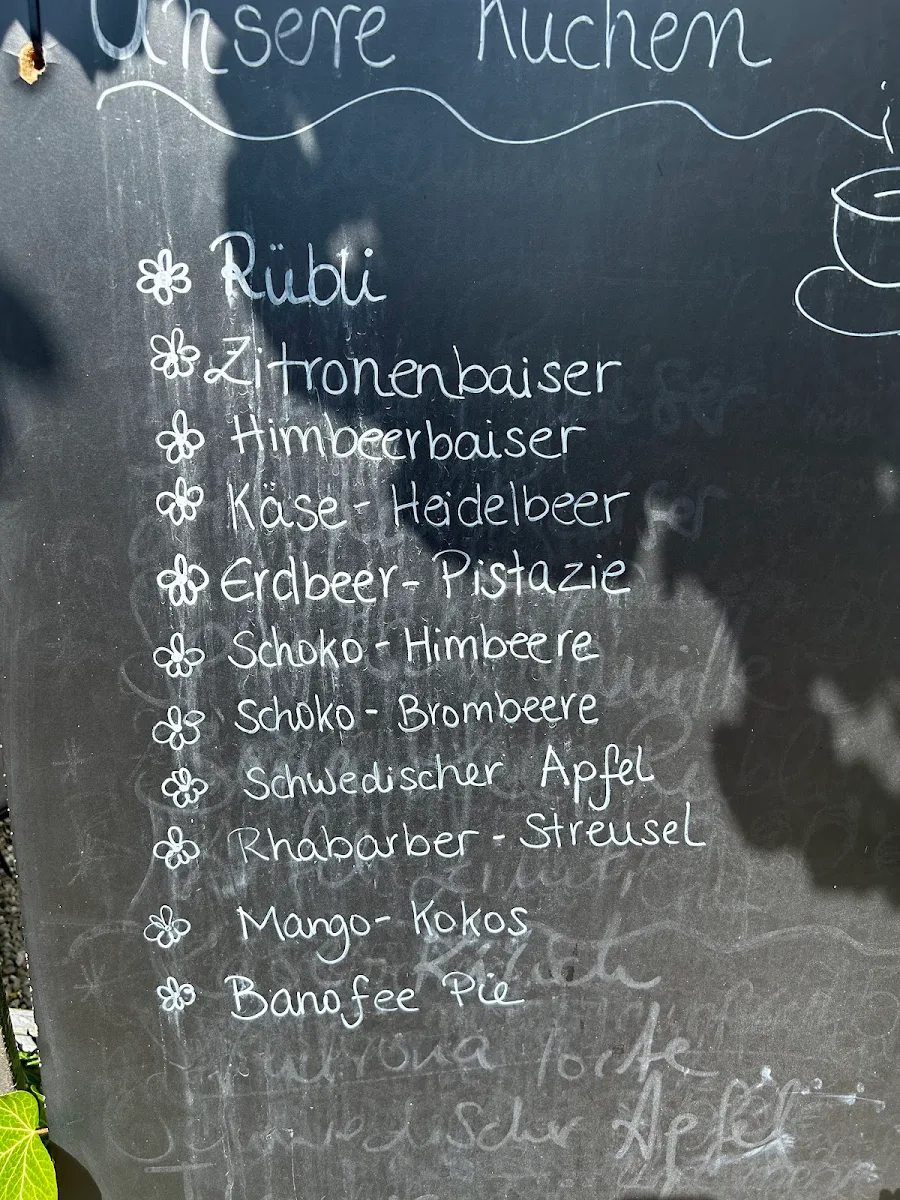 Unsere Kuchen
Rübli
Zitronenbaiser
Himbeerbaiser
Käse-Heidelbeer
Erdbeer-Pistazie
Schoko-Himbeere
Schoko-Brombeere
Schwedischer Apfel
Rhabarber-Streusel
Mango-Kokos
Banofee Pie
Torte
Schwedischer Apfel